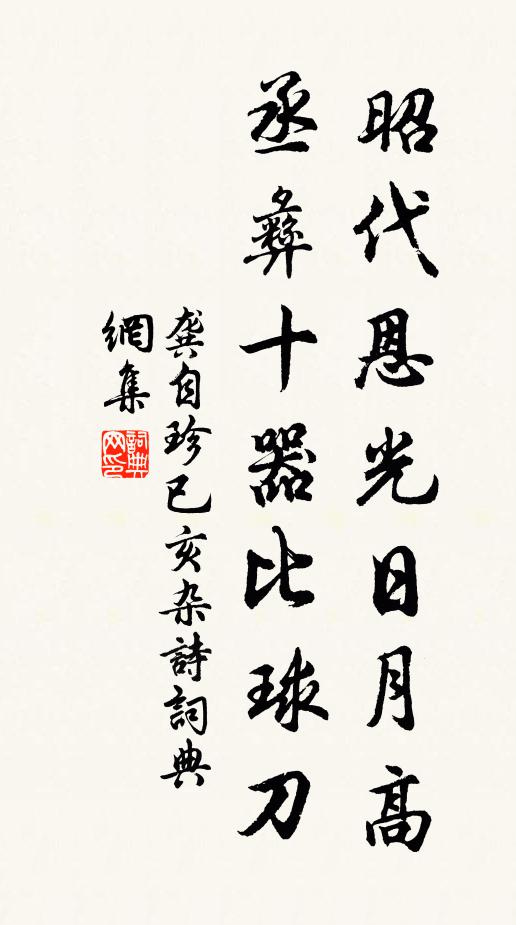 昭代恩光日月高
丞彝十器比球刀
龔自珍己亥杂詩詞典
網集
詞典
网印